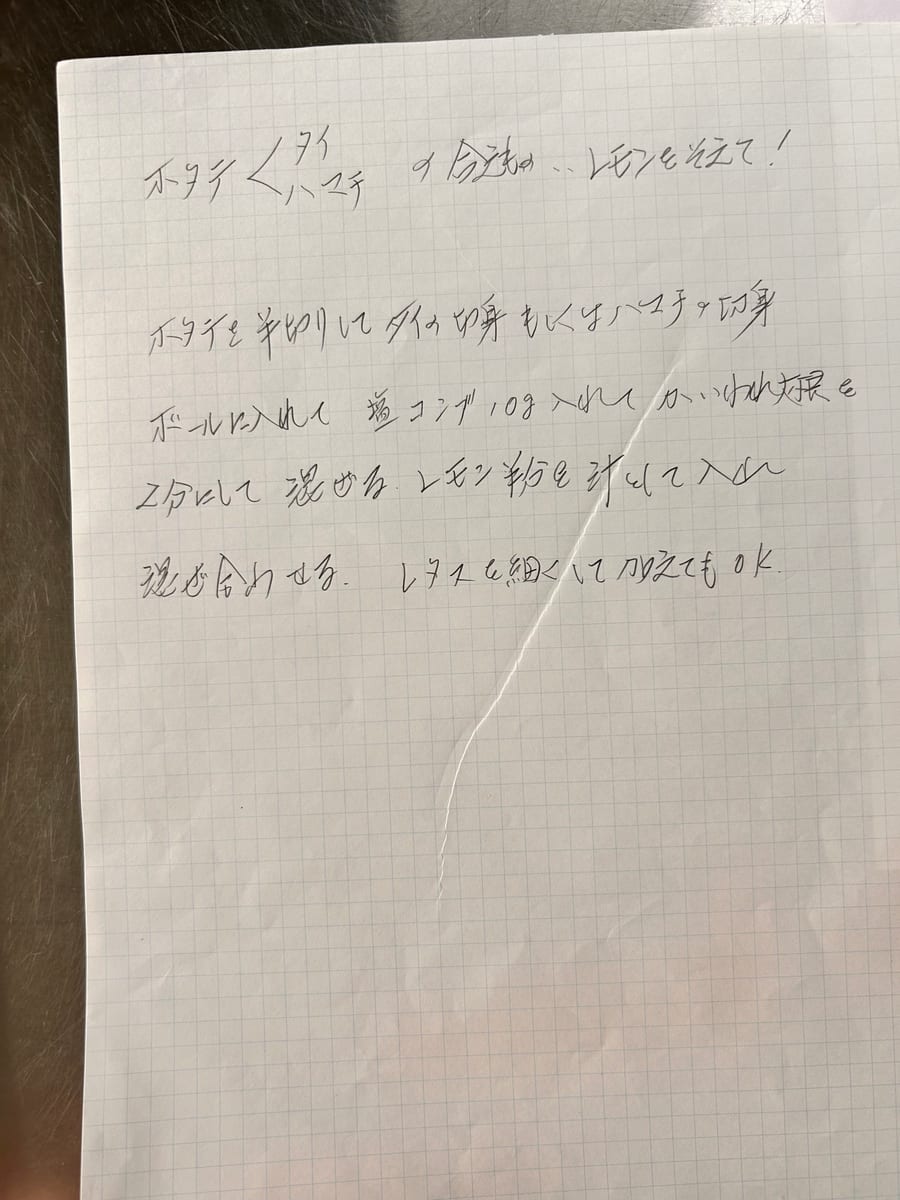 ホタテ < タイ ハマチ の合えもの‥レモンをそえて!
ホタテを半切りして タイの切身 もしくはハマチの切身
ボールに入れて 塩コンブ10g入れて かいわれ大根を
2分にして 混ぜる. レモン半分を汁をして入れ
混ぜ合わせる. レタスを細くして加えてもOK.